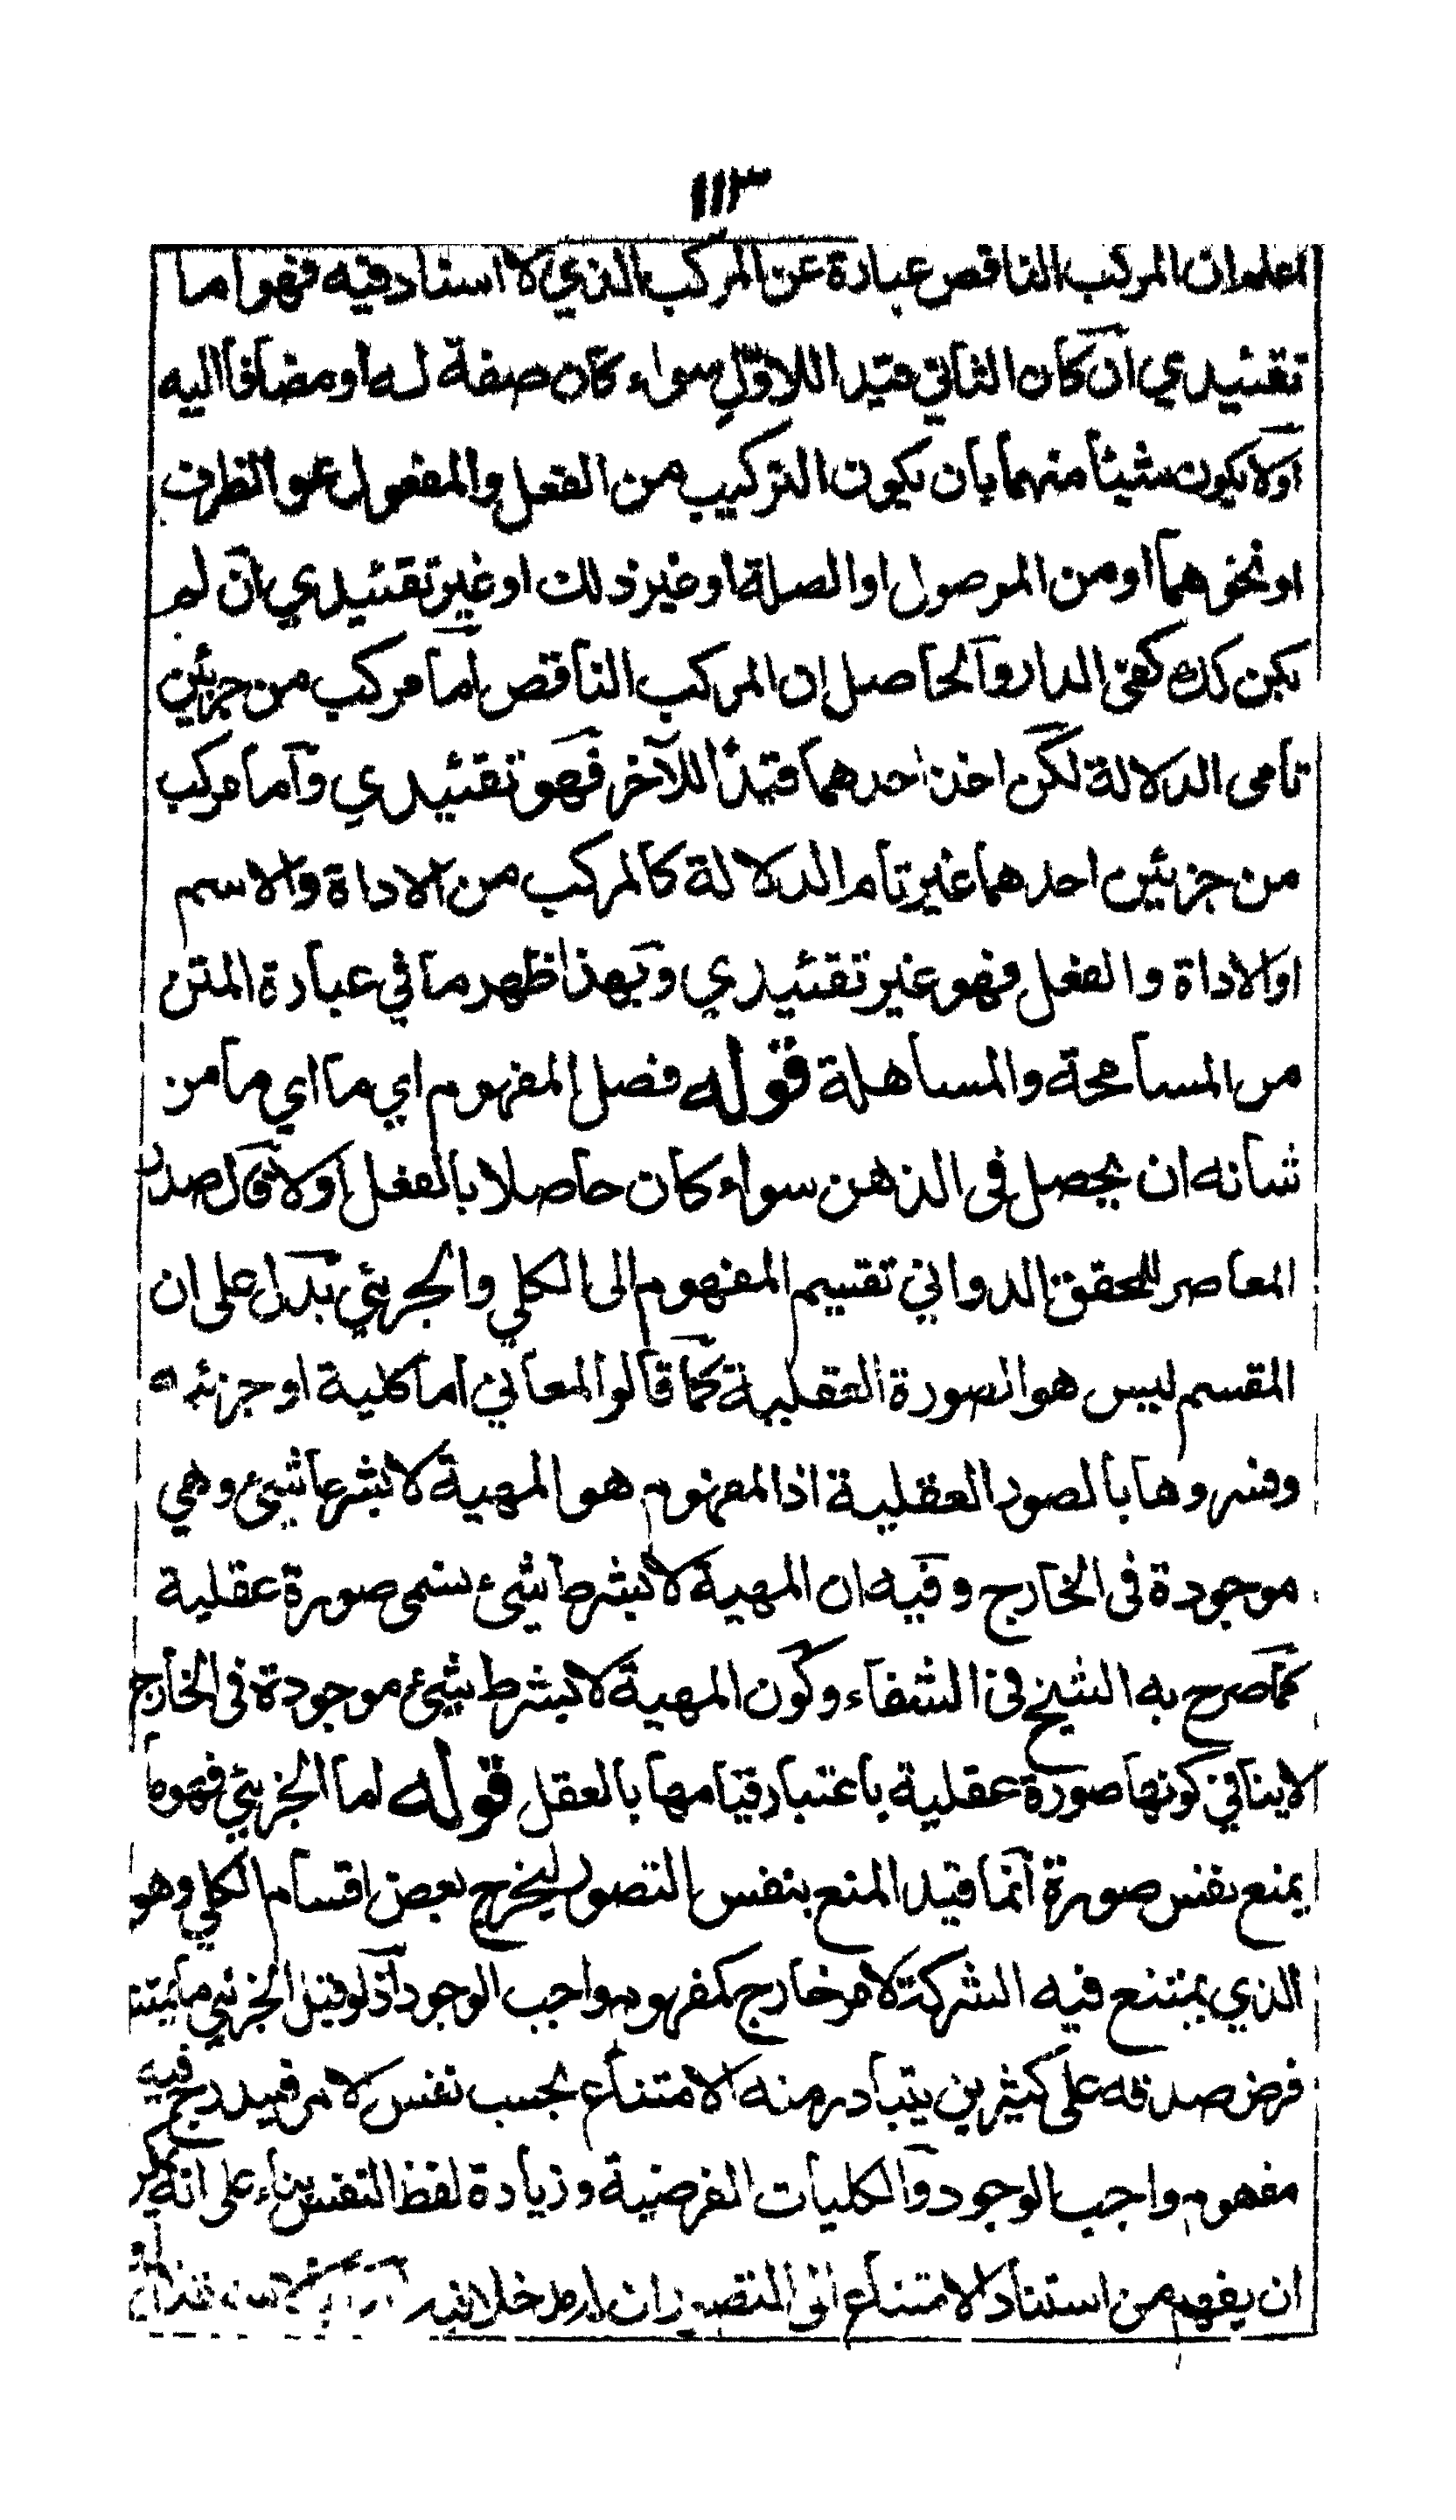 ١١٣
اعلم ان المركب الناقص عبارة عن المركب الذي لا اسناد فيه فهو اما
تقئيدي ان كان الثاني قيدا للاول سواء كان صفة له او مضافا اليه
اولا يكون شيئا منهما بان يكون التركيب من الفعل والمفعول نحو الظرف
او نحوهما او من الموصول او الصلة او غير ذلك او غير تقئيدي بان لم
يكن كك كفى الدار والحاصل ان المركب الناقص اما مركب من جزئين
تامى الدلالة لكن اخذ احدهما قيدا للآخر فهو تقئيدي واما مركب
من جزئين احدهما غير تام الدلالة كالمركب من الاداة والاسم
او الاداة والفعل فهو غير تقئيدي وبهذا ظهر ما في عبارة المتن
من المسامحة والمساهلة قوله فصل المفهوم اي ما اي ما من
شانه ان يحصل فى الذهن سواء كان حاصلا بالفعل اولا قال صدر
المعاصر للمحقق الدواني تقسيم المفهوم الى الكلي والجزئي يدل على ان
المقسم ليس هو الصورة العقلية كما قالوا المعاني اما كلية او جزئية
وفسروها بالصور العقلية اذ المفهوم هو المهية لا بشرط شيئ وهي
موجودة فى الخارج وفيه ان المهية لا بشرط شيئ يسمى صورة عقلية
كما صرح به الشيخ في الشفاء وكون المهية لا بشرط شيئ موجودة فى الخارج
لا ينافي كونها صورة عقلية باعتبار قيامها بالعقل قوله اما الجزئي فهو ما
يمنع نفس صورة انما قيد المنع بنفس التصور ليخرج بعض اقسام الكلي وهو
الذي يمتنع فيه الشركة لامر خارج كمفهوم واجب الوجود اذ لو قيل الجزئي ما يمتنع
فرض صدقه على كثيرين يتبادر منه الامتناع بحسب نفس الامر فيدرج فيه
مفهوم واجب الوجود والكليات الفرضية وزيادة لفظ النفس بناء على انه
ان يفهم من استناد الامتناع الى التصور ان له مدخلا فيه